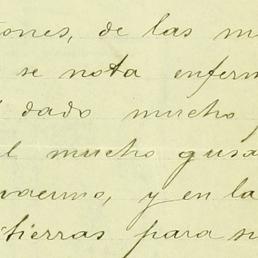 iones, de las m
se nota enferm
dado mucho
l mucho gusa
vacuno, y en la
tierras para su